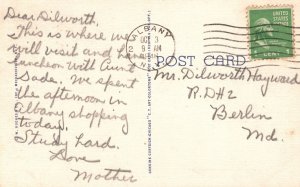 Dear Dilworth,
This is where we
will visit and have
luncheon with Aunt
Sada. We spent
the afternoon in
Albany shopping
today.
Study hard.
Love
Mother
ALBANY
OCT 3
9 AM
POST CARD
Mr. Dilworth Hayward
R.D#2
Berlin
Md.
UNITED STATES
POSTAGE
1 CENT